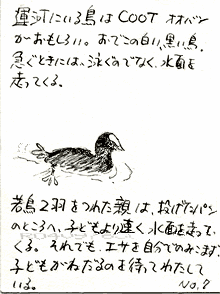 運河にいる鳥はCOOT オオバン
がおもしろい。おでこの白い黒い鳥。
急ぐときには、泳ぐのでなく、水面を
走ってくる。
若鳥2羽をつれた親は、投げたパン
のところへ、子どもより速く水面を走って
くる。それでも、エサを自分でのみこまず、
子どもがねだるのを待ってわたして
いる。
No.7